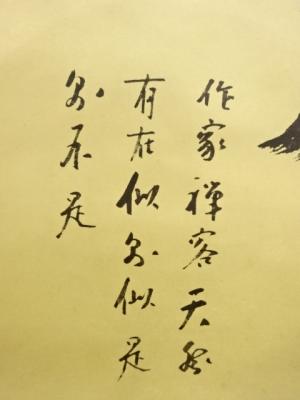 作家禅客天然
有在似則似是
則不是